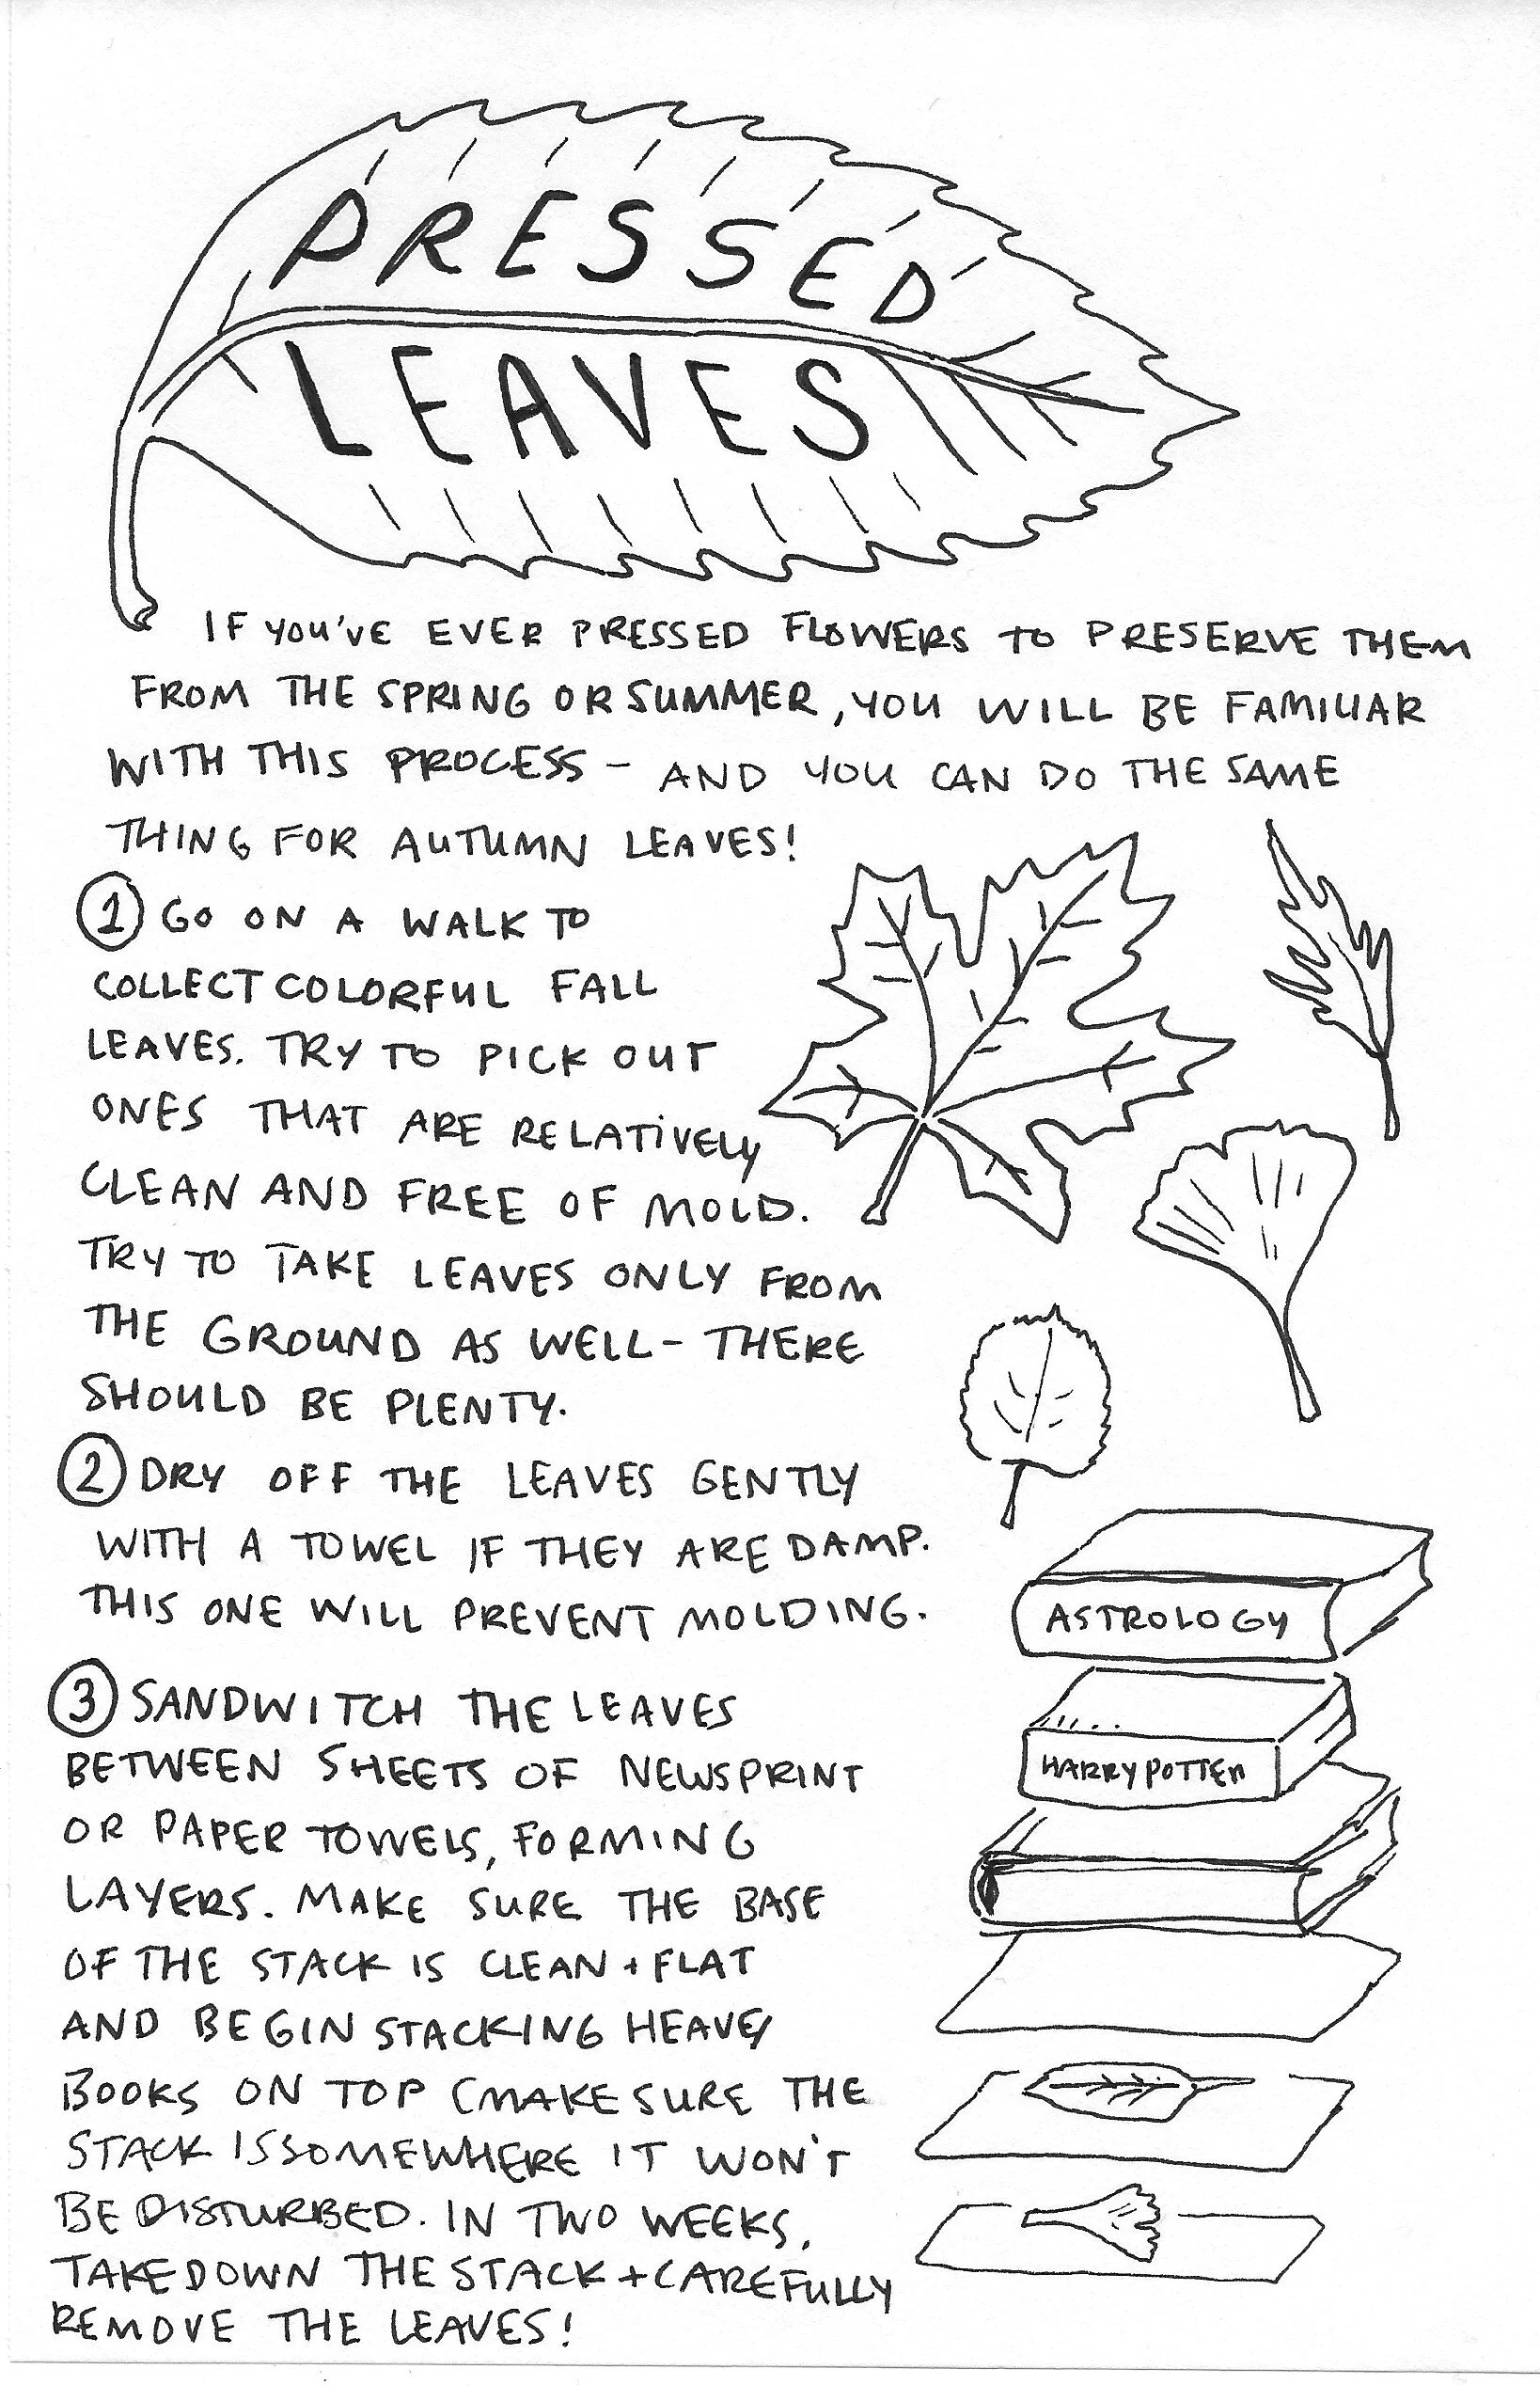 PRESSED
LEAVES
IF YOU'VE EVER PRESSED FLOWERS TO PRESERVE THEM
FROM THE SPRING OR SUMMER, YOU WILL BE FAMILIAR
WITH THIS PROCESS - AND YOU CAN DO THE SAME
THING FOR AUTUMN LEAVES!
1 GO ON A WALK TO
COLLECT COLORFUL FALL
LEAVES. TRY TO PICK OUT
ONES THAT ARE RELATIVELY
CLEAN AND FREE OF MOLD.
TRY TO TAKE LEAVES ONLY FROM
THE GROUND AS WELL - THERE
SHOULD BE PLENTY.
2 DRY OFF THE LEAVES GENTLY
WITH A TOWEL IF THEY ARE DAMP.
THIS ONE WILL PREVENT MOLDING.
3 SANDWITCH THE LEAVES
BETWEEN SHEETS OF NEWSPRINT
OR PAPER TOWELS, FORMING
LAYERS. MAKE SURE THE BASE
OF THE STACK IS CLEAN + FLAT
AND BEGIN STACKING HEAVEY
BOOKS ON TOP (MAKE SURE THE
STACK IS SOMEWHERE IT WON'T
BE DISTURBED. IN TWO WEEKS,
TAKE DOWN THE STACK + CAREFULLY
REMOVE THE LEAVES!
ASTROLOGY
HARRY POTTER